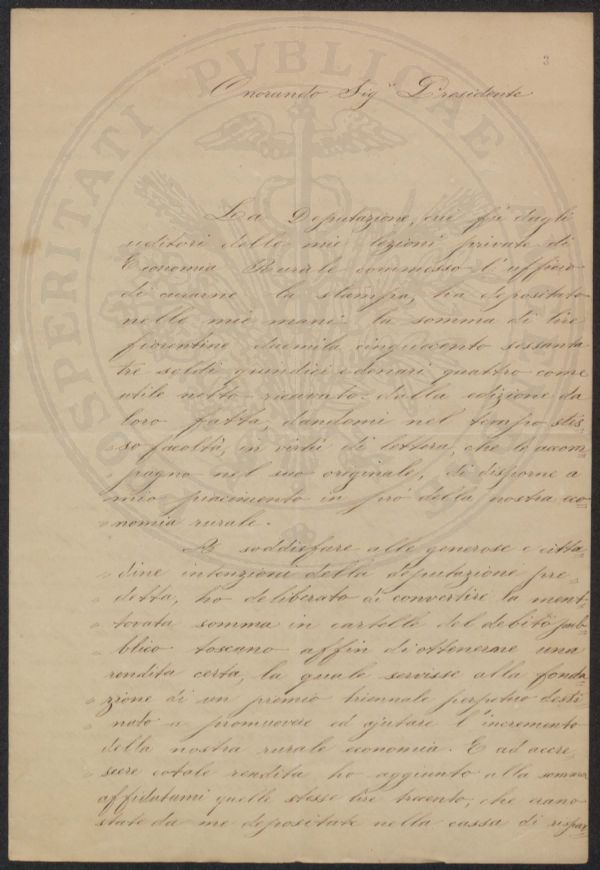 3
Onorando Sig.r Presidente
La Deputazione, cui fù dagli
uditori delle mie lezioni private di
Economia Rurale commesso l'ufficio
di curarne la stampa, ha depositato
nelle mie mani la somma di lire
fiorentine duemila cinquecento sessanta
tre soldi quindici e denari quattro come
utile netto ricavato dalla edizione da
loro fatta, dandomi nel tempo stes=
=so facoltà, in virtù di lettera, che le accom=
pagno nel suo originale, di disporne a
mio piacimento in prò della nostra eco=
=nomia rurale.
A soddisfare alle generose e citta=
=dine intenzioni della deputazione pre=
=detta, ho deliberato di convertire la men=
=tovata somma in cartelle del debito pub=
=blico toscano affin di ottenerne una
rendita certa, la quale servisse alla fonda=
=zione di un premio biennale perpetuo desti=
=nato a promuovere ed ajutare l'incremento
della nostra rurale economia. E ad accre=
=scere cotale rendita ho aggiunto alla somma
affidatami quelle stesse lire trecento, che erano
state da me depositate nella cassa di rispar=
PROSPERITATI PVBLICAE